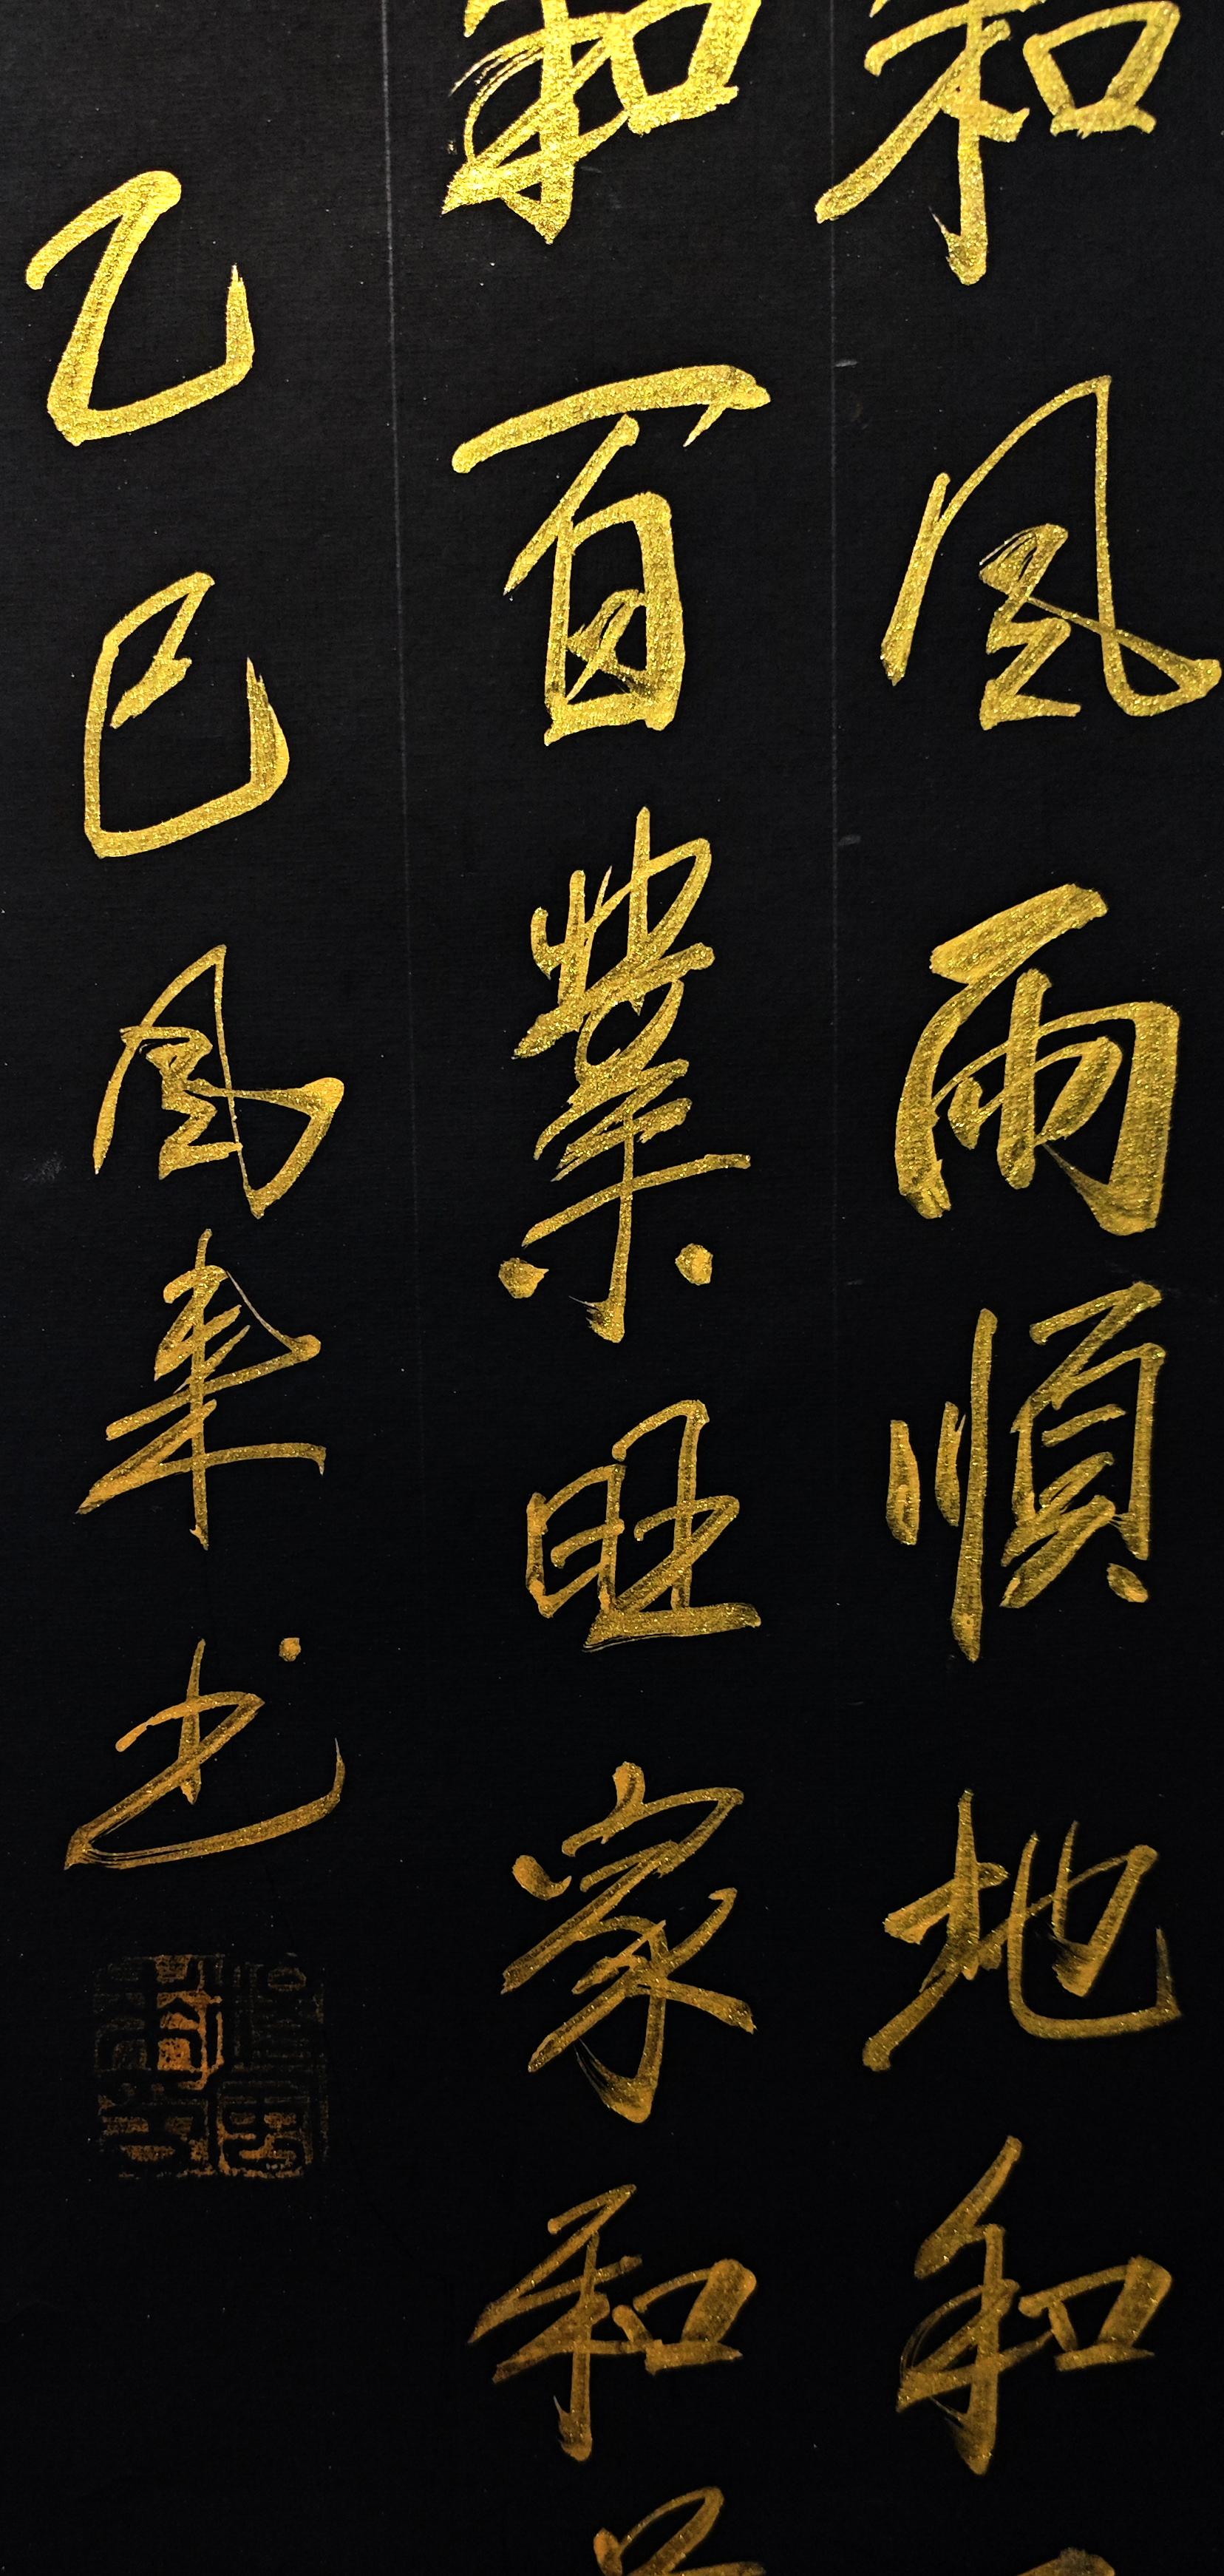 和風雨順地和
和百業旺家和
乙巳風來书